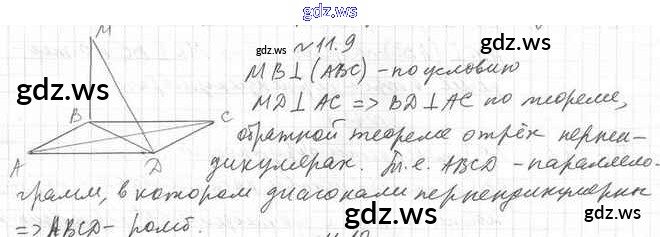 gdz.ws
M
№11.9
gdz.ws
gdz.ws
MB⊥(ABC) - по условию
gdz.ws
MD⊥AC => BD⊥AC по теореме,
B
C
обратной теореме о трёх перпен-
A
D
дикулярах. Т.е. ABCD - параллело-
грамм, в котором диагонали перпендикулярны
gdz.ws
gdz.ws
=> ABCD - ромб.